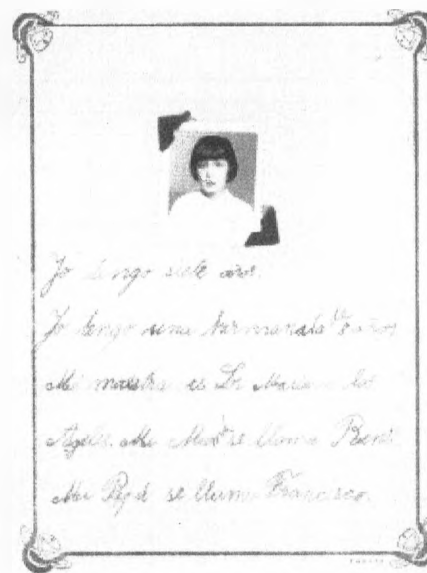 Yo tengo siete años.
Yo tengo una hermanita de años
Mi maestra es María de los
Ageles. Mi Mamá se llama
Mi Papá se llama Francisco.